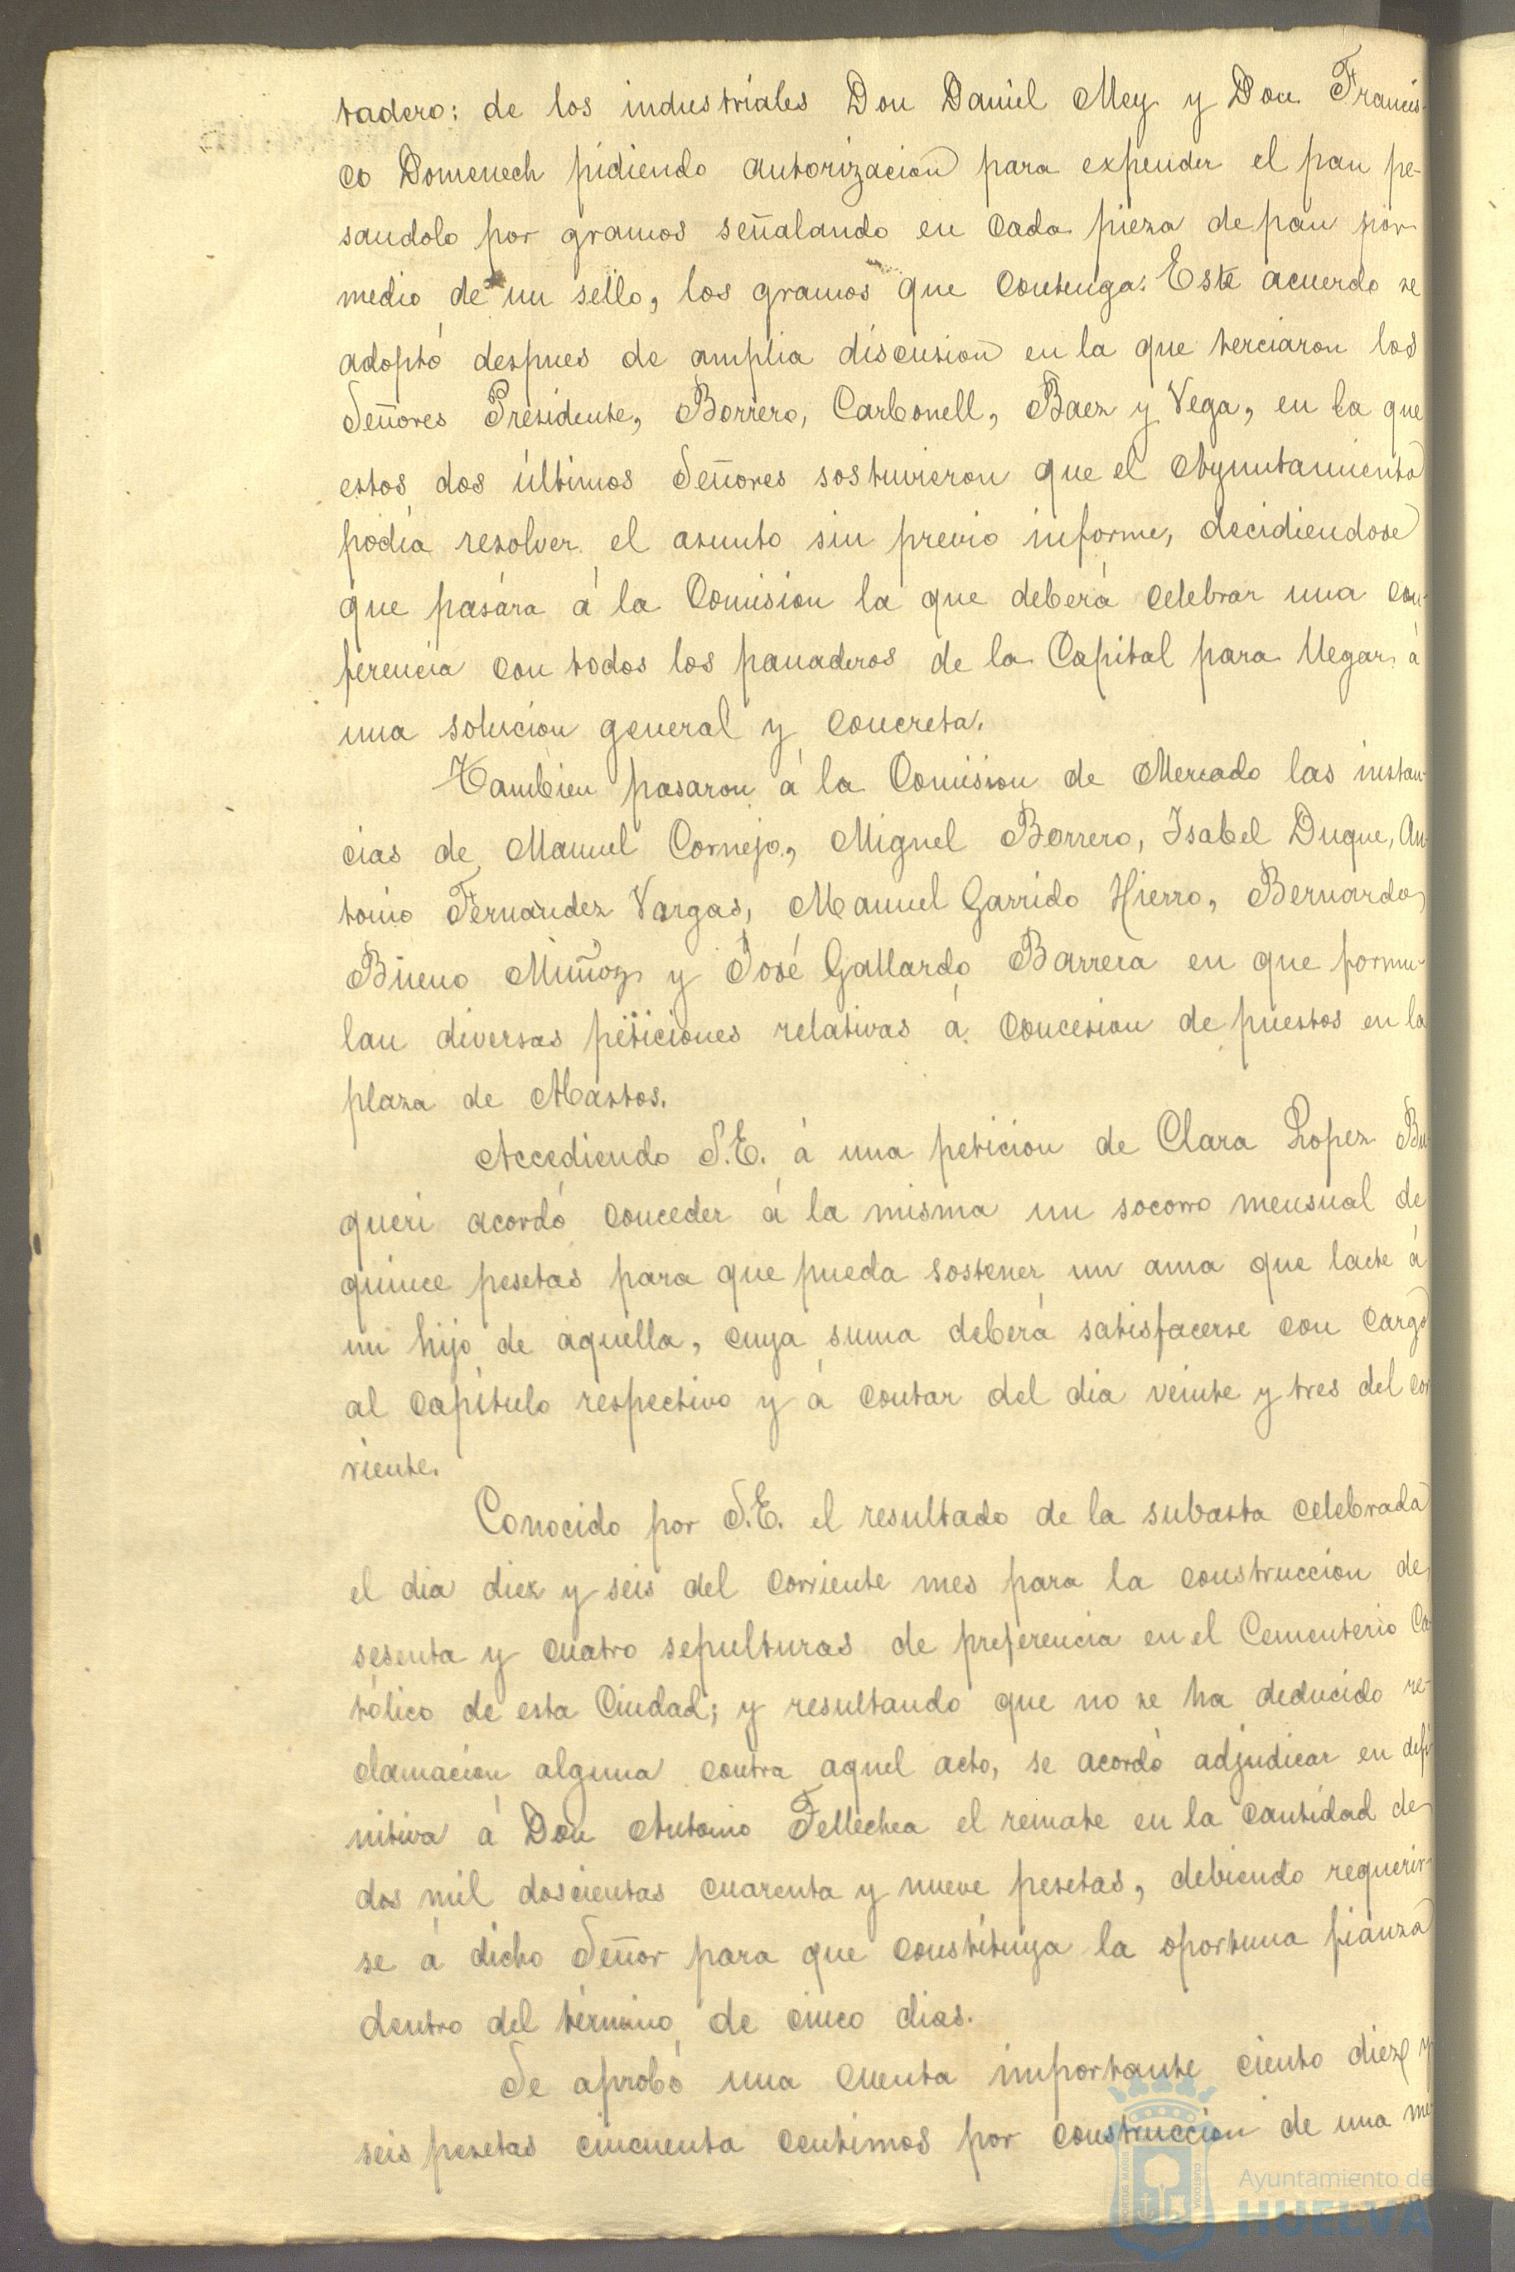 tadero: de los industriales Don Daniel Mey y Don Francis-
co Domenech pidiendo autorizacion para expender el pan pe-
sandolo por gramos señalando en cada pieza de pan por
medio de un sello, los gramos que contenga. Este acuerdo se
adoptó despues de amplia discusion en la que terciaron los
Señores Presidente, Borrero, Carbonell, Baez y Vega, en la que
estos dos últimos Señores sostuvieron que el Ayuntamiento
podía resolver el asunto sin previo informe, decidiendose
que pasára á la Comision la que deberá celebrar una con-
ferencia con todos los panaderos de la Capital para llegar á
una solucion general y concreta.
Tambien pasaron á la Comision de Mercado las instan-
cias de Manuel Cornejo, Miguel Borrero, Isabel Duque, An-
tonio Fernandez Vargas, Manuel Garrido Hierro, Bernardo
Bueno Muñoz y José Gallardo Barrera en que formu-
lan diversas peticiones relativas á concesion de puestos en la
plaza de Abastos.
Accediendo S.E. á una peticion de Clara Lopez Bu
queri acordó conceder á la misma un socorro mensual de
quince pesetas para que pueda sostener un ama que lacte á
un hijo de aquella, cuya suma deberá satisfacerse con cargo
al capítulo respectivo y á contar del dia veinte y tres del cor
riente.
Conocido por S.E. el resultado de la subasta celebrada
el dia diez y seis del corriente mes para la construccion de
sesenta y cuatro sepulturas de preferencia en el Cementerio Ca
tólico de esta Ciudad; y resultando que no se ha deducido re-
clamacion alguna contra aquel acto, se acordó adjudicar en defi
nitiva á Don Antonio Tellechea el remate en la cantidad de
dos mil doscientas cuarenta y nueve pesetas, debiendo requerir-
se á dicho Señor para que constituya la oportuna fianza
dentro del término de cinco dias.
Se aprobó una cuenta importante ciento diez y
seis pesetas cincuenta centimos por construccion de una me
Ayuntamiento de
HUELVA